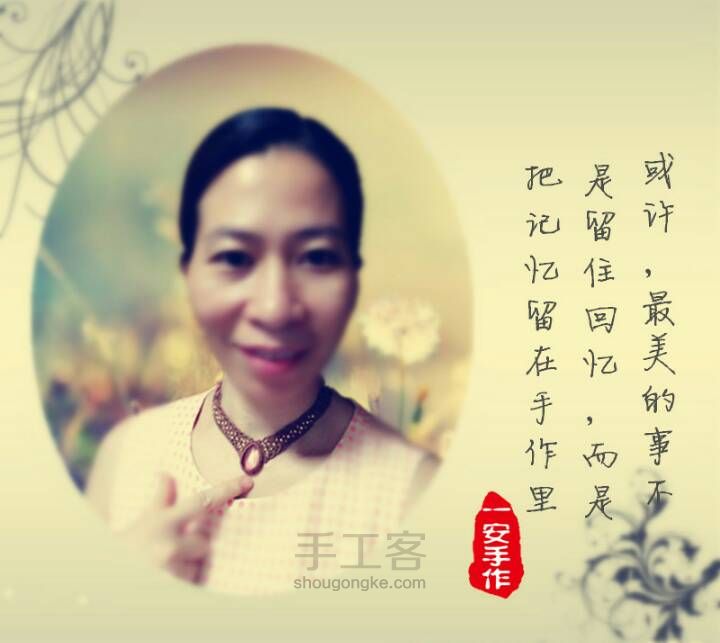 或许，最美的事不
是留住回忆，而是
把记忆留在手作里
一安手作
手工客
shougongke.com